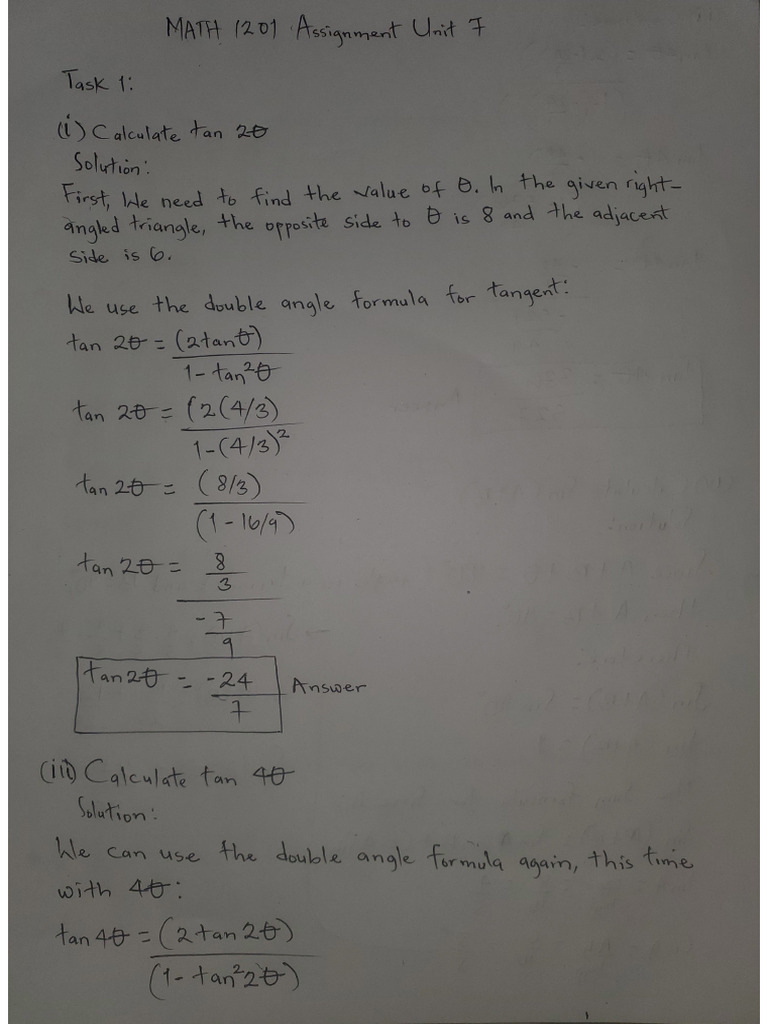 MATH 1201 Assignment Unit 7
Task 1:
(i) Calculate tan 2θ
Solution:
First, We need to find the value of θ. In the given right-
angled triangle, the opposite side to θ is 8 and the adjacent
side is 6.
We use the double angle formula for tangent:
tan 2θ = (2tanθ)
1 - tan²θ
tan 2θ = (2(4/3)
1-(4/3)²
tan 2θ = (8/3)
(1 - 16/9)
tan 2θ = 8
3
-7
9
tan 2θ = -24 Answer
7
(iii) Calculate tan 4θ
Solution:
We can use the double angle formula again, this time
with 4θ:
tan 4θ = (2 tan 2θ)
(1 - tan²2θ)